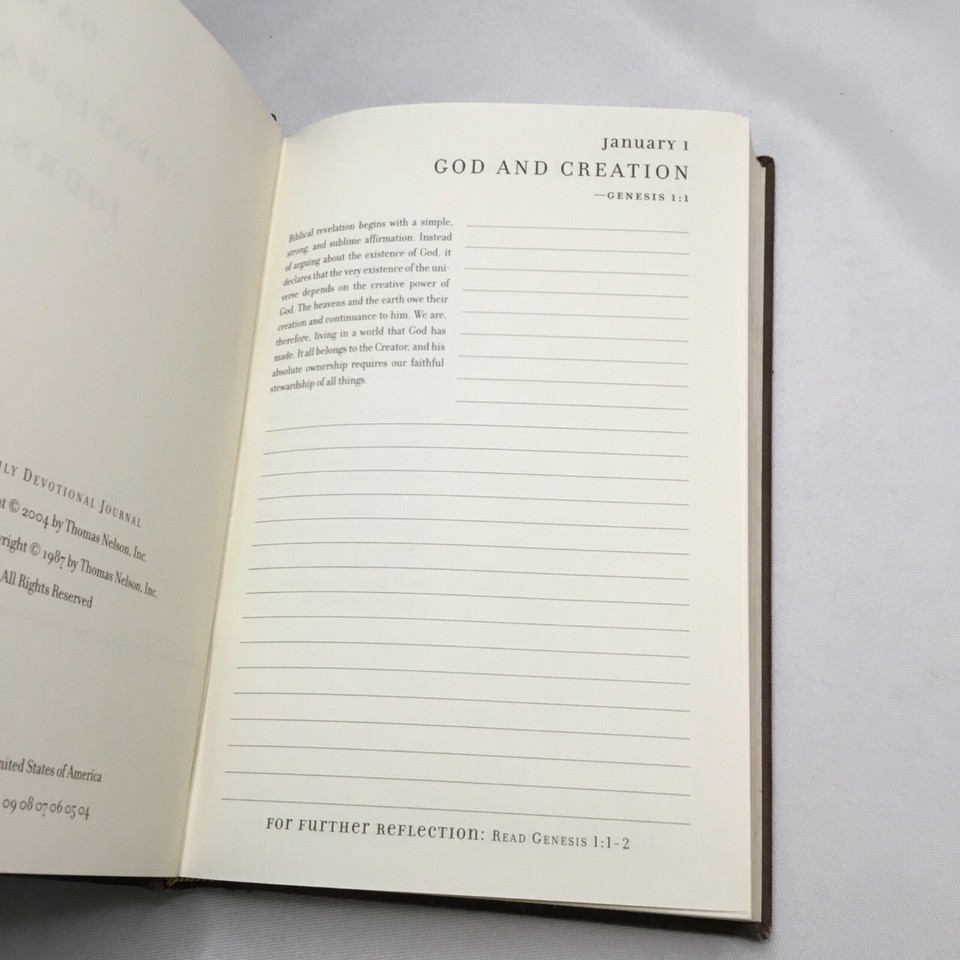 DEVOTIONAL JOURNAL
© 2004 by Thomas Nelson, Inc.
© 1987 by Thomas Nelson, Inc.
All Rights Reserved
States of America
09 08 07 06 05 04
January 1
GOD AND CREATION
—GENESIS 1:1
Biblical revelation begins with a simple,
strong, and sublime affirmation. Instead
of arguing about the existence of God, it
declares that the very existence of the uni-
verse depends on the creative power of
God. The heavens and the earth owe their
creation and continuance to him. We are,
therefore, living in a world that God has
made. It all belongs to the Creator, and his
absolute ownership requires our faithful
stewardship of all things.
For Further Reflection: Read Genesis 1:1-2